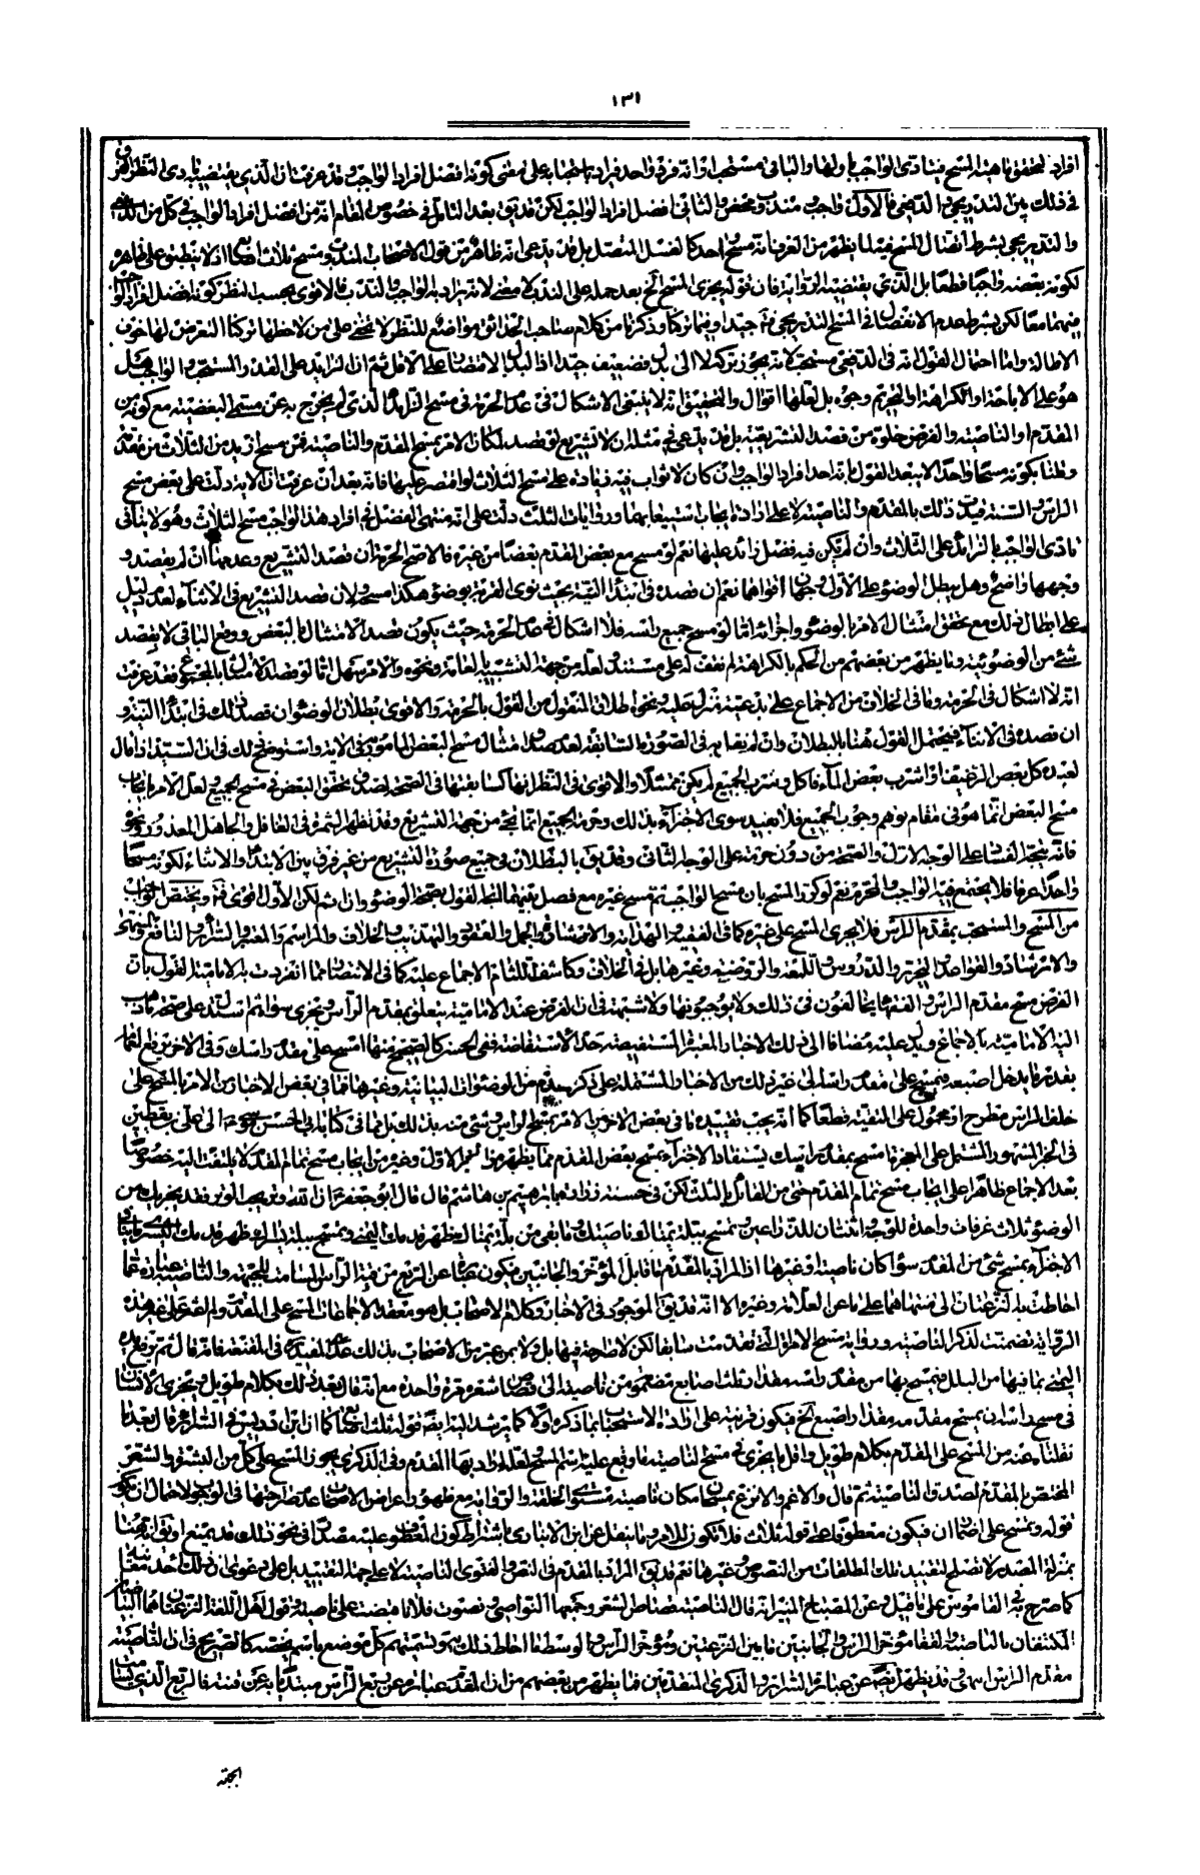 ١٣١
افراد لتحقق ماهية المسح فيتادى الواجب باولها والباقي مستحب او انه فرد واحد فيراد باستحبابه على معنى كونه افضل افراد الواجب قد عرفت ان الذي يقتضيه بادى النظر الفرق
في ذلك بين التدريجي والدفعي فالاول واجب مندوب محض والثاني افضل افراد الواجب لكن قد يق بعد التامل في خصوص المقام انه من افضل افراد الواجب في كل من الدفعي
والتدريجي بشرط اتصال المسح فيه لما يظهر من العرف انه مسح واحد كالغسل المتصل بل قد يدعى انه ظاهر من قول الاصحاب المندوب مسح ثلاث اصابع اذ لا ينطبق على ظاهره
لكونه بعضه واجبا قطعا بل الذي يقتضيه الرواية فان قوله يجزي المسح الخ بعد حمله على الندب لا معنى لانه يراد به الواجب والندب فالاقوى بحسب النظر كونه افضل افراد الواجب
فيهما معا لكن بشرط عدم الانفصال في المسح التدريجي فت جيدا وفيما تركنا وذكرنا من كلام صاحب الحدائق مواضع للنظر لا تخفى على من لاحظها تركنا التعرض لها خوف
الاطالة واما احتمال القول انه في الدفعي مستحب لانه يجوز تركه لا الى بدل فضعيف جيدا اذ البدل الاقتصار على الاقل ثم ان الزايد على القدر المستحب والواجب هل
هو على الاباحة او الكراهة او التحريم وجوه بل لعلها اقوال والتحقيق انه لا ينبغي الاشكال في عدم الحرمة في مسح الزايد الذي لم يخرج به عن مسمى البعضية مع كونه من
المقدم او الناصية والفرض خلوه من قصد التشريعية بل قد يدعى في مثله ان لا تشريع لو قصد لمكان الامر بمسح المقدم والناصية فمن مسح ازيد من الثلاث من مقدمه
وقلنا بكونه مسحا واحدا لا يبعد القول بانه احد افراد الواجب وان كان لا ثواب فيه زيادة على مسح الثلاث لو اقتصر عليها فانه بعد أن عرفت ان الاية دلت على بعض مسح
الراس والسنة قيدت ذلك بالمقدم والناصية لا على ارادة ايجاب استيعابهما وروايات الثلث دلت على انه منتهى الفضل في افراد هذا الواجب مسح الثلاث وهو لا ينافى
تادى الواجب بالزائد على الثلاث وان لم يكن فيه فضل زائد عليها نعم لو مسح مع بعض المقدم بعضا من غيره فالاصح الحرمة ان قصد التشريع وعدمها ان لم يقصد و
وجهها واضح وهل يبطل الوضوء على الاول وجهان اقواهما نعم ان قصده في ابتداء النية بحيث نوى القربة بوضوء هكذا مسحه ولا ان قصد التشريع في الاثناء لعدم دليل
على ابطال ذلك مع تحقق امتثال الامر بالوضوء واجزائه اما لو مسح جميع راسه فلا اشكال في عدم الحرمة حيث يكون قصد الامتثال بالبعض ووقع الباقي لا بقصد
شيء من الوضوئية وما يظهر من بعضهم من الحكم بالكراهة لم نقف له على مستند لعله من جهة التشبيه بالعامة ونحوه والامر سهل اما لو قصد الامتثال بالمجموع فقد عرفت
انه لا اشكال في الحرمة وما في الخلاف من الاجماع على بدعيته منزل عليه ونحوه اطلاق المنقول من القول بالحرمة والاقوى بطلان الوضوء ان قصد ذلك في ابتداء النية و
ان قصده في الاثناء فيحتمل القول هنا بالبطلان وان لم يقل به في الصورة السابقة لعدم صدق امتثال مسح البعض المامور به في الاية واستوضح ذلك في ان السيد اذا قال
لعبده كل بعض الرغيف او اشرب بعض الماء فاكل وشرب الجميع لم يكن ممتثلا والاقوى في النظر انها كسابقتها في الصحة لصدق تحقق البعض في مسح الجميع لعل الامر بايجاب
مسح البعض انما هو في مقام توهم وجوب الجميع فلا يفيد سوى الاجزاء بذلك وحرمة الجميع انما تجئ من جهة التشريع وقد تظهر الثمرة في الغافل والجاهل المعذور ونحو
فانه يتجه الفساد على الوجه الاول والصحة من دون حرمة على الوجه الثاني وقد يق بالبطلان في جميع صورة التشريع من غير فرق بين الابتداء والاثناء لكونه مسحا
واحدا عرفا فلا يجتمع فيه الواجب والمحرم نعم لو كرر المسح بان مسح الواجب ثم مسح غيره مع فصل بينهما اتجه القول بصحة الوضوء وان اثم لكن الاول اقوى فت ويختص الواجب
من المسح والمستحب بمقدم الراس فلا يجزي المسح على غيره كما في الفقيه والهداية والانتصار والجمل والعقود والتهذيب والخلاف والمراسم والمعتبر والشرائع والنافع والمنتهى
والارشاد والقواعد والتحرير والدروس واللمعة والروضة وغيرها بل في الخلاف وكاشف اللثام الاجماع عليه كما في الانتصار مما انفردت به الامامية القول بان
الفرض مسح مقدم الراس والفقهاء يخالفون في ذلك ولا يوجبونها ولا شبهة في ان الفرض عند الامامية متعلق بمقدم الراس ويجزى سواه ثم استدل على صحة ما ذهب
اليه الامامية بالاجماع ويدل عليه مضافا الى ذلك الاخبار المعتبرة المستفيضة حد الاستفاضة ففي الحسن كالصحيح منها امسح على مقدم راسك وفى الاخر يرفع العمامة
بقدر ما يدخل اصبعه فيمسح على مقدم راسه الى غير ذلك من الاخبار المشتملة على ذكر مقدم في الوضوءات البيانية وغيرها فما في بعض الاخبار من الامر بالمسح على
خلف الراس مطرح او محمول على التقية قطعا كما انه يجب تقييد ما في بعض الاخر بالامر بمسح الراس شئ منه بذلك بل ما في كتاب ابي الحسن موسى الى علي بن يقطين
في الخبر المشهور المشتمل على المعجزة امسح بمقدم راسك يستفاد الاجزاء بمسح بعض المقدم فما يظهر من الاول وغيره من ايجاب مسح تمام المقدم لا يلتفت اليه خصوصا
بعد الاجماع ظاهرا على ايجاب مسح تمام المقدم حتى من القائل بالثلث لكن في حسنة زرارة بابراهيم بن هاشم قال قال ابو جعفر ان الله وتر يحب الوتر فقد يجزيك من
الوضوء ثلاث غرفات واحدة للوجه واثنتان للذراعين وتمسح ببلة يمناك ناصيتك وما بقي من بلة يمناك ظهر قدمك اليمنى وتمسح ببلة يسراك ظهر قدمك اليسرى
الاجزاء بمسح شئ من المقدم سواء كان ناصية او غيرها اذ المراد بالمقدم ما قابل المؤخر والجانبين فيكون عبارة عن الربع من قبة الراس المسامت للجبهة والناصية عبارة عما
احاطت به النزعتان الى منتهاهما على ما عن العلامة وغيره الا انه قد يق الموجود في الاخبار وكلام الاصحاب بل هو معقد الاجماعات المسح على المقدم ولم نعثر على غير هذه
الرواية تضمنت لذكر الناصية ورواية مسح الامراة التي تقدمت سابقا لكن لا صراحة فيها بل ولا من عبر من الاصحاب بذلك عدا المفيد في المقنعة فانه قال ثم يرفع يده
اليمنى بما فيها من البلل فيمسح بها من مقدم راسه مقدار ثلث اصابع مضمومة من ناصيته الى قصاص شعره مرة واحدة مع انه قال بعد ذلك بكلام طويل ويجزى الانسان
في مسح راسه ان يمسح مقدمه مقدار اصبع الخ فيكون قرينة على ارادة الاستحباب بما ذكره اولا كما يرشد اليه ايضا قوله ثلث اصابع كما ان ابن ادريس في السرائر قال بعد ما
نقلناه عنه من المسح على المقدم بكلام طويل واقل ما يجزى في مسح الناصية ما وقع عليه اسم المسح لعله اراد بها المقدم وفى الذكرى يجوز المسح على كل من البشرة والشعر
المختص بالمقدم لصدق الناصية ثم قال والاغم والانزع يمسحان مكان ناصية مستوى الخلقة والرواية مع ظهور واعراض الاصحاب عدم صراحتها في الوجوب لاحتمال ان يكون
قوله وتمسح على اضمار ان فيكون معطوفا على قوله ثلاث فلا تكون للامر وما ينقل عن ابن الانباري باشتراط كون المعطوف عليه مصدرا في نحو ذلك قد يمنع او يق انه هنا
بمنزلة المصدر لا تصلح لتقييد تلك المطلقات من النصوص وغيرها نعم قد يق المراد بالمقدم في النص والفتوى الناصية لا على جهة التقييد بل على دعوى ان ذلك احد معانيه
كما صرح به في القاموس على ما قيل وعن المصباح المنير انه قال الناصية قصاص الشعر وجمعها النواصي ونصوت فلانا قبضت على ناصيته وقول اهل اللغة النزعتان هما البياضان
المكتنفان بالناصية والقفا مؤخر الراس والجانبين ما بين النزعتين ومؤخر الراس والوسط ما احاط ذلك به وتسميتهم كل موضع باسم يخصه كالصريح في ان الناصية
مقدم الراس اسمى وقد يظهر ايضا عن عبارة السرائر والذكرى المتقدمين فما يظهر من بعضهم من ان المقدم عبارة عن ربع الراس مبتديا به عن قبته فالربع الذي يسامت
الجبهة